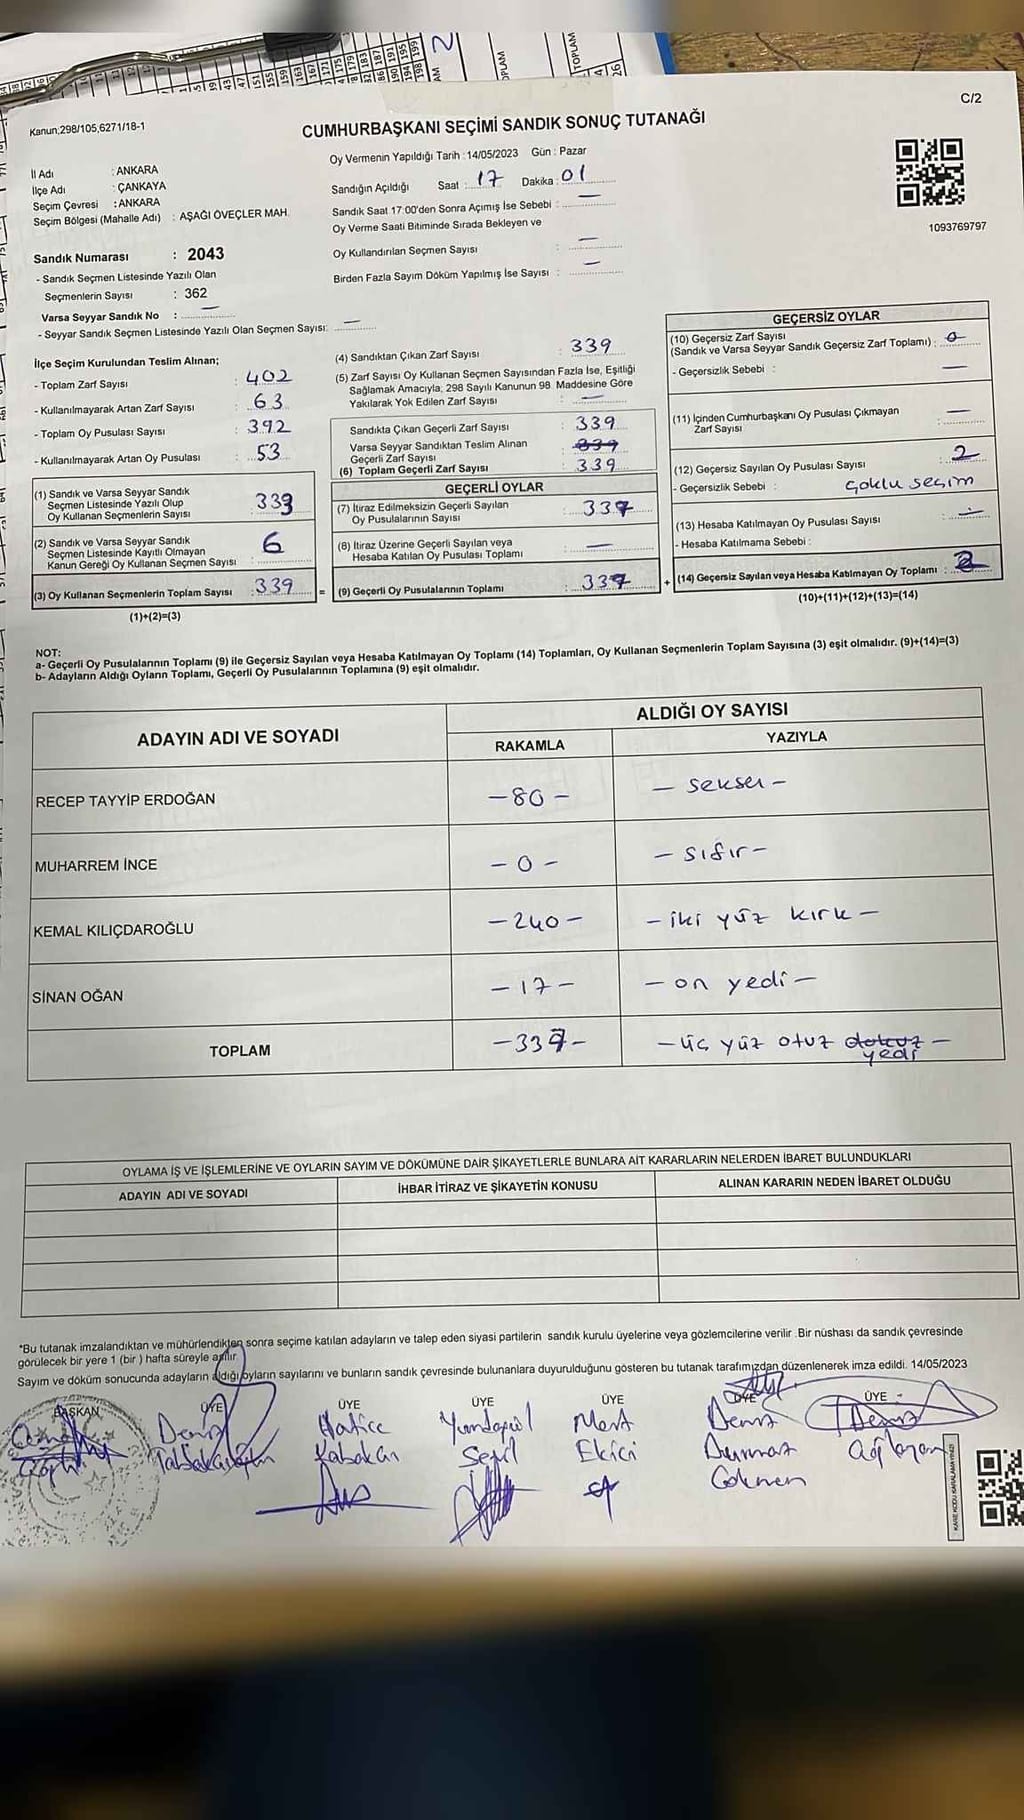 C/2
Kanun;298/105,6271/18-1
CUMHURBAŞKANI SEÇİMİ SANDIK SONUÇ TUTANAĞI
İl Adı : ANKARA
İlçe Adı : ÇANKAYA
Seçim Çevresi : ANKARA
Seçim Bölgesi (Mahalle Adı) : AŞAĞI ÖVEÇLER MAH.
Sandık Numarası : 2043
- Sandık Seçmen Listesinde Yazılı Olan
Seçmenlerin Sayısı : 362
Varsa Seyyar Sandık No : —
- Seyyar Sandık Seçmen Listesinde Yazılı Olan Seçmen Sayısı: —
Oy Vermenin Yapıldığı Tarih : 14/05/2023 Gün : Pazar
Sandığın Açıldığı Saat : 17 Dakika : 01
Sandık Saat 17:00'den Sonra Açımış İse Sebebi : —
Oy Verme Saati Bitiminde Sırada Bekleyen ve
Oy Kullandırılan Seçmen Sayısı : —
Birden Fazla Sayım Döküm Yapılmış İse Sayısı : —
1093769797
İlçe Seçim Kurulundan Teslim Alınan;
- Toplam Zarf Sayısı : 402
- Kullanılmayarak Artan Zarf Sayısı : 63
- Toplam Oy Pusulası Sayısı : 392
- Kullanılmayarak Artan Oy Pusulası : 53
(1) Sandık ve Varsa Seyyar Sandık
Seçmen Listesinde Yazılı Olup
Oy Kullanan Seçmenlerin Sayısı : 333
(2) Sandık ve Varsa Seyyar Sandık
Seçmen Listesinde Kayıtlı Olmayan
Kanun Gereği Oy Kullanan Seçmen Sayısı : 6
(3) Oy Kullanan Seçmenlerin Toplam Sayısı : 339
(1)+(2)=(3)
(4) Sandıktan Çıkan Zarf Sayısı : 339
(5) Zarf Sayısı Oy Kullanan Seçmen Sayısından Fazla İse, Eşitliği
Sağlamak Amacıyla; 298 Sayılı Kanunun 98 Maddesine Göre
Yakılarak Yok Edilen Zarf Sayısı : —
Sandıkta Çıkan Geçerli Zarf Sayısı : 339
Varsa Seyyar Sandıktan Teslim Alınan
Geçerli Zarf Sayısı : 339
(6) Toplam Geçerli Zarf Sayısı : 339
GEÇERLİ OYLAR
(7) İtiraz Edilmeksizin Geçerli Sayılan
Oy Pusulalarının Sayısı : 337
(8) İtiraz Üzerine Geçerli Sayılan veya
Hesaba Katılan Oy Pusulası Toplamı : —
(9) Geçerli Oy Pusulalarının Toplamı : 337
GEÇERSİZ OYLAR
(10) Geçersiz Zarf Sayısı
(Sandık ve Varsa Seyyar Sandık Geçersiz Zarf Toplamı) : 0
- Geçersizlik Sebebi : —
(11) İçinden Cumhurbaşkanı Oy Pusulası Çıkmayan
Zarf Sayısı : —
(12) Geçersiz Sayılan Oy Pusulası Sayısı : 2
- Geçersizlik Sebebi : çoklu seçim
(13) Hesaba Katılmayan Oy Pusulası Sayısı : —
- Hesaba Katılmama Sebebi :
(14) Geçersiz Sayılan veya Hesaba Katılmayan Oy Toplamı : 2
(10)+(11)+(12)+(13)=(14)
NOT:
a- Geçerli Oy Pusulalarının Toplamı (9) ile Geçersiz Sayılan veya Hesaba Katılmayan Oy Toplamı (14) Toplamları, Oy Kullanan Seçmenlerin Toplam Sayısına (3) eşit olmalıdır. (9)+(14)=(3)
b- Adayların Aldığı Oyların Toplamı, Geçerli Oy Pusulalarının Toplamına (9) eşit olmalıdır.
ADAYIN ADI VE SOYADI
ALDIĞI OY SAYISI
RAKAMLA YAZIYLA
RECEP TAYYİP ERDOĞAN -80- - seksen -
MUHARREM İNCE -0- - sıfır -
KEMAL KILIÇDAROĞLU -240- - iki yüz kırk -
SİNAN OĞAN -17- - on yedi -
TOPLAM -337- - üç yüz otuz dokuz -
yedi
OYLAMA İŞ VE İŞLEMLERİNE VE OYLARIN SAYIM VE DÖKÜMÜNE DAİR ŞİKAYETLERLE BUNLARA AİT KARARLARIN NELERDEN İBARET BULUNDUKLARI
ADAYIN ADI VE SOYADI İHBAR İTİRAZ VE ŞİKAYETİN KONUSU ALINAN KARARIN NEDEN İBARET OLDUĞU
*Bu tutanak imzalandıktan ve mühürlendikten sonra seçime katılan adayların ve talep eden siyasi partilerin sandık kurulu üyelerine veya gözlemcilerine verilir .Bir nüshası da sandık çevresinde
görülecek bir yere 1 (bir ) hafta süreyle asılır.
Sayım ve döküm sonucunda adayların aldığı oyların sayılarını ve bunların sandık çevresinde bulunanlara duyurulduğunu gösteren bu tutanak tarafımızdan düzenlenerek imza edildi. 14/05/2023
BAŞKAN ÜYE ÜYE ÜYE ÜYE ÜYE ÜYE
Deniz Hatice Yurdagül Mert Deniz Deniz
Kabakan Sezil Ekici Durmaz Ağlayan
Gökmen
KARE KODU KARALAMAYINIZ!